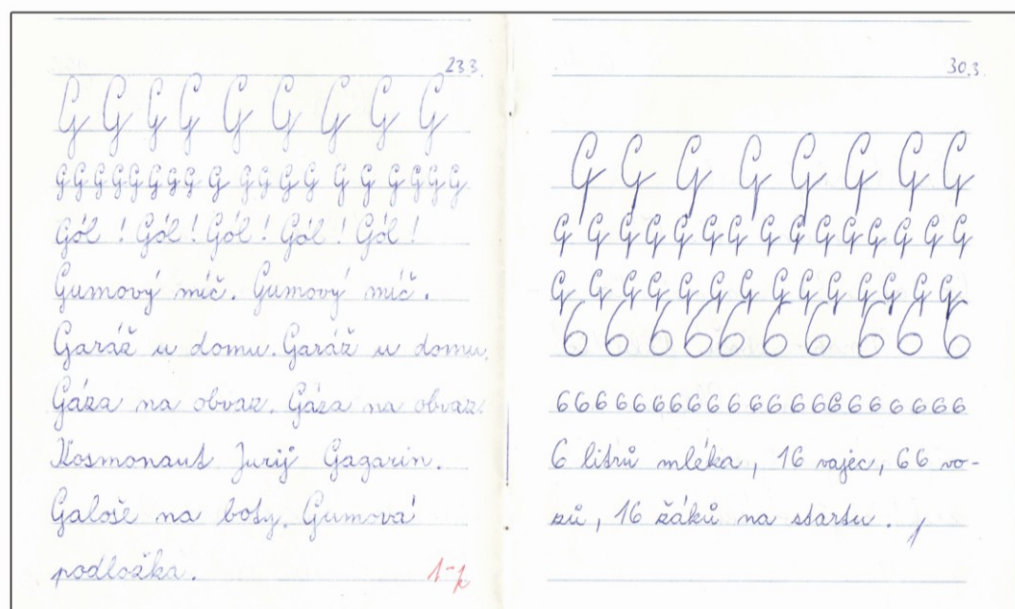 23.3.
G G G G G G G G G
G G G G G G G G G G G G G G G G G G G
Gól! Gól! Gól! Gól! Gól!
Gumový míč. Gumový míč.
Garáž u domu. Garáž u domu.
Gáza na obvaz. Gáza na obvaz.
Kosmonaut Jurij Gagarin.
Galoše na boty. Gumová
podložka.
30.3.
G G G G G G G G
G G G G G G G G G G G G G G G
G G G G G G G G G G G G G G
6 6 6 6 6 6 6 6 6 6
6 6 6 6 6 6 6 6 6 6 6 6 6 6 6 6 6 6 6 6 6 6
6 litrů mléka, 16 vajec, 66 vo-
zů, 16 žáků na startu.